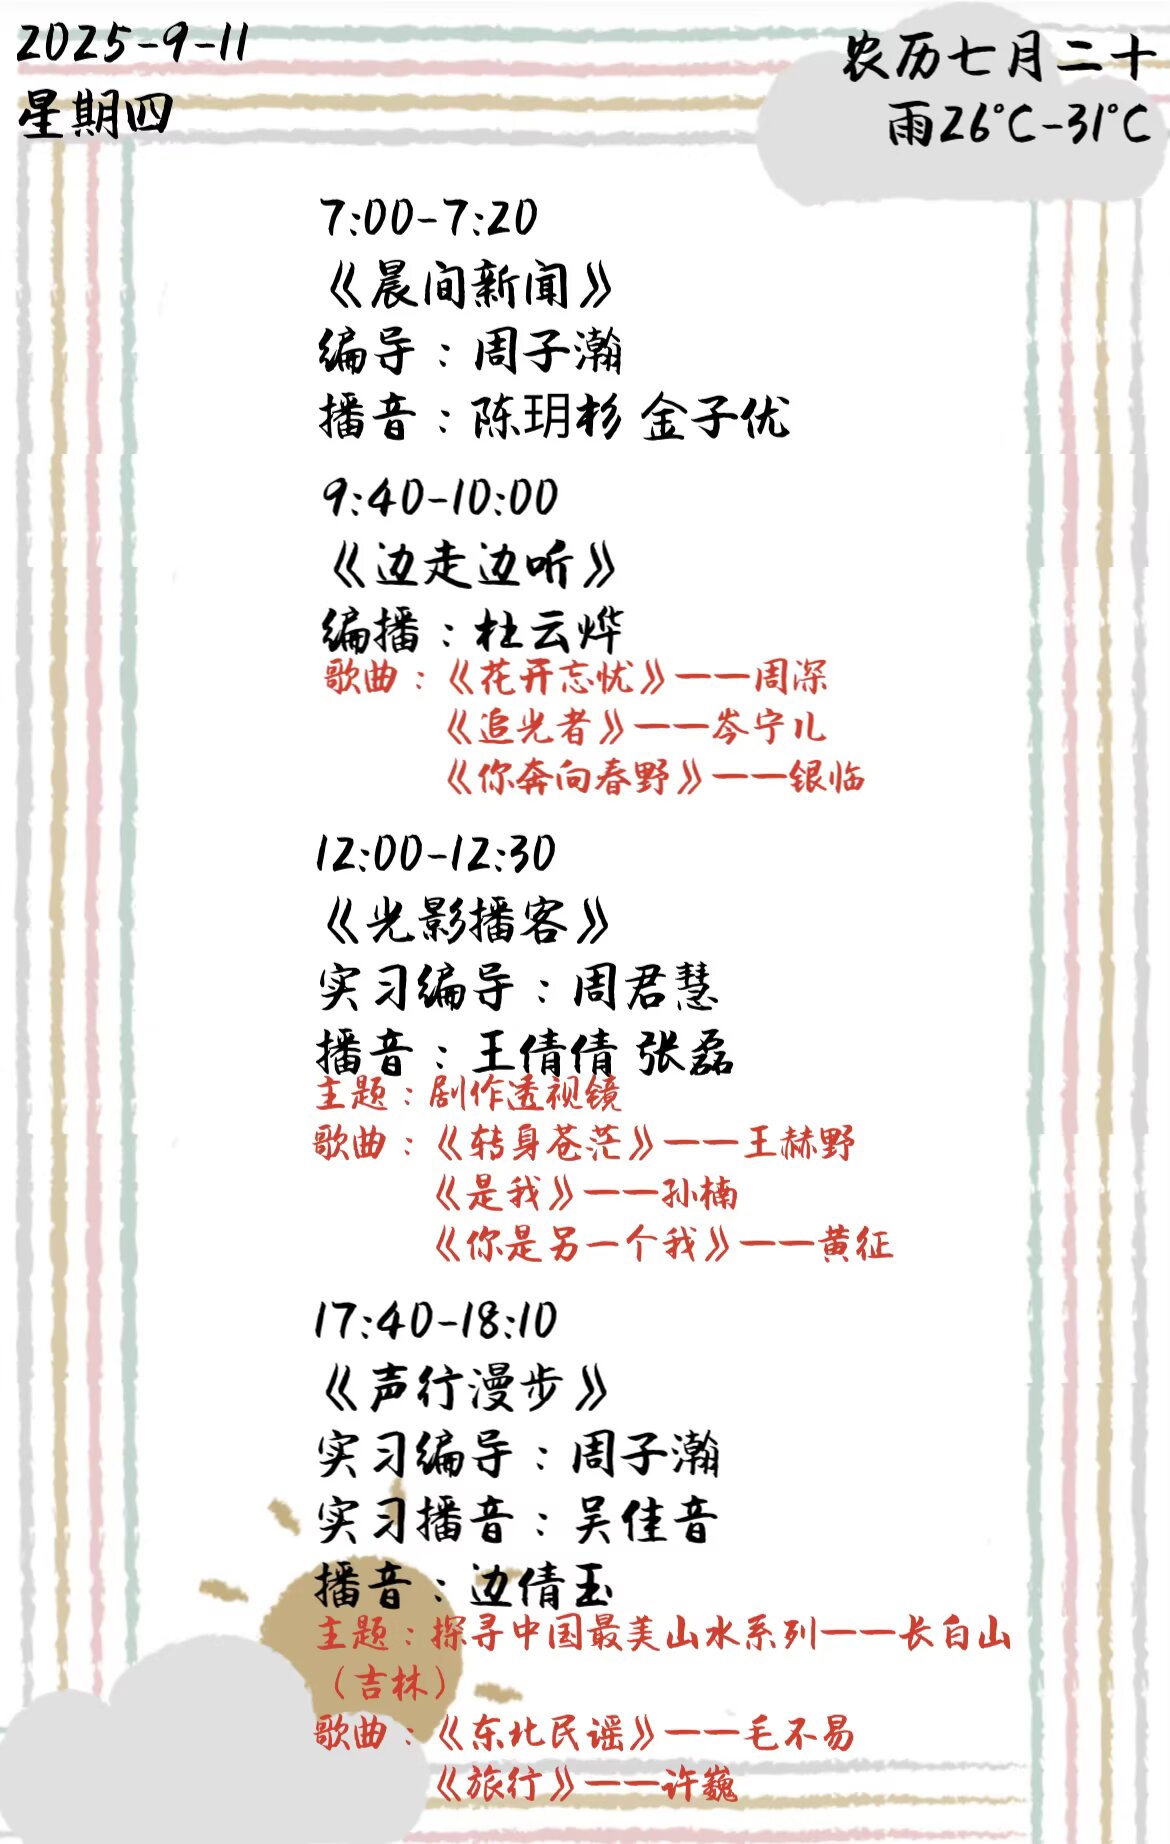 2025-9-11
星期四
农历七月二十
雨26°C-31°C
7:00-7:20
《晨间新闻》
编导：周子瀚
播音：陈玥杉 金子优
9:40-10:00
《边走边听》
编播：杜云烨
歌曲：《花开忘忧》——周深
《追光者》——岑宁儿
《你奔向春野》——银临
12:00-12:30
《光影播客》
实习编导：周君慧
播音：王倩倩 张磊
主题：剧作透视镜
歌曲：《转身苍茫》——王赫野
《是我》——孙楠
《你是另一个我》——黄征
17:40-18:10
《声行漫步》
实习编导：周子瀚
实习播音：吴佳音
播音：边倩玉
主题：探寻中国最美山水系列——长白山
（吉林）
歌曲：《东北民谣》——毛不易
《旅行》——许巍